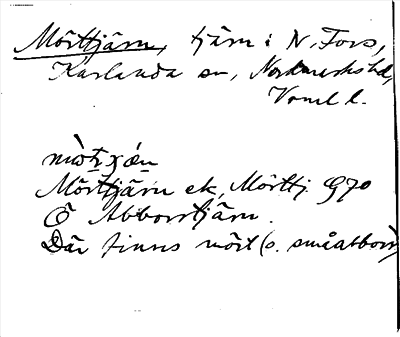 Mörttjärn, tjärn i N. Fors,
Karlanda sn, Nordmarks hd,
Värml. l.
Mörttjärn ek, Mörttj. 970
Ö Abborrtjärn.
Där finns mört (o. småabborr)